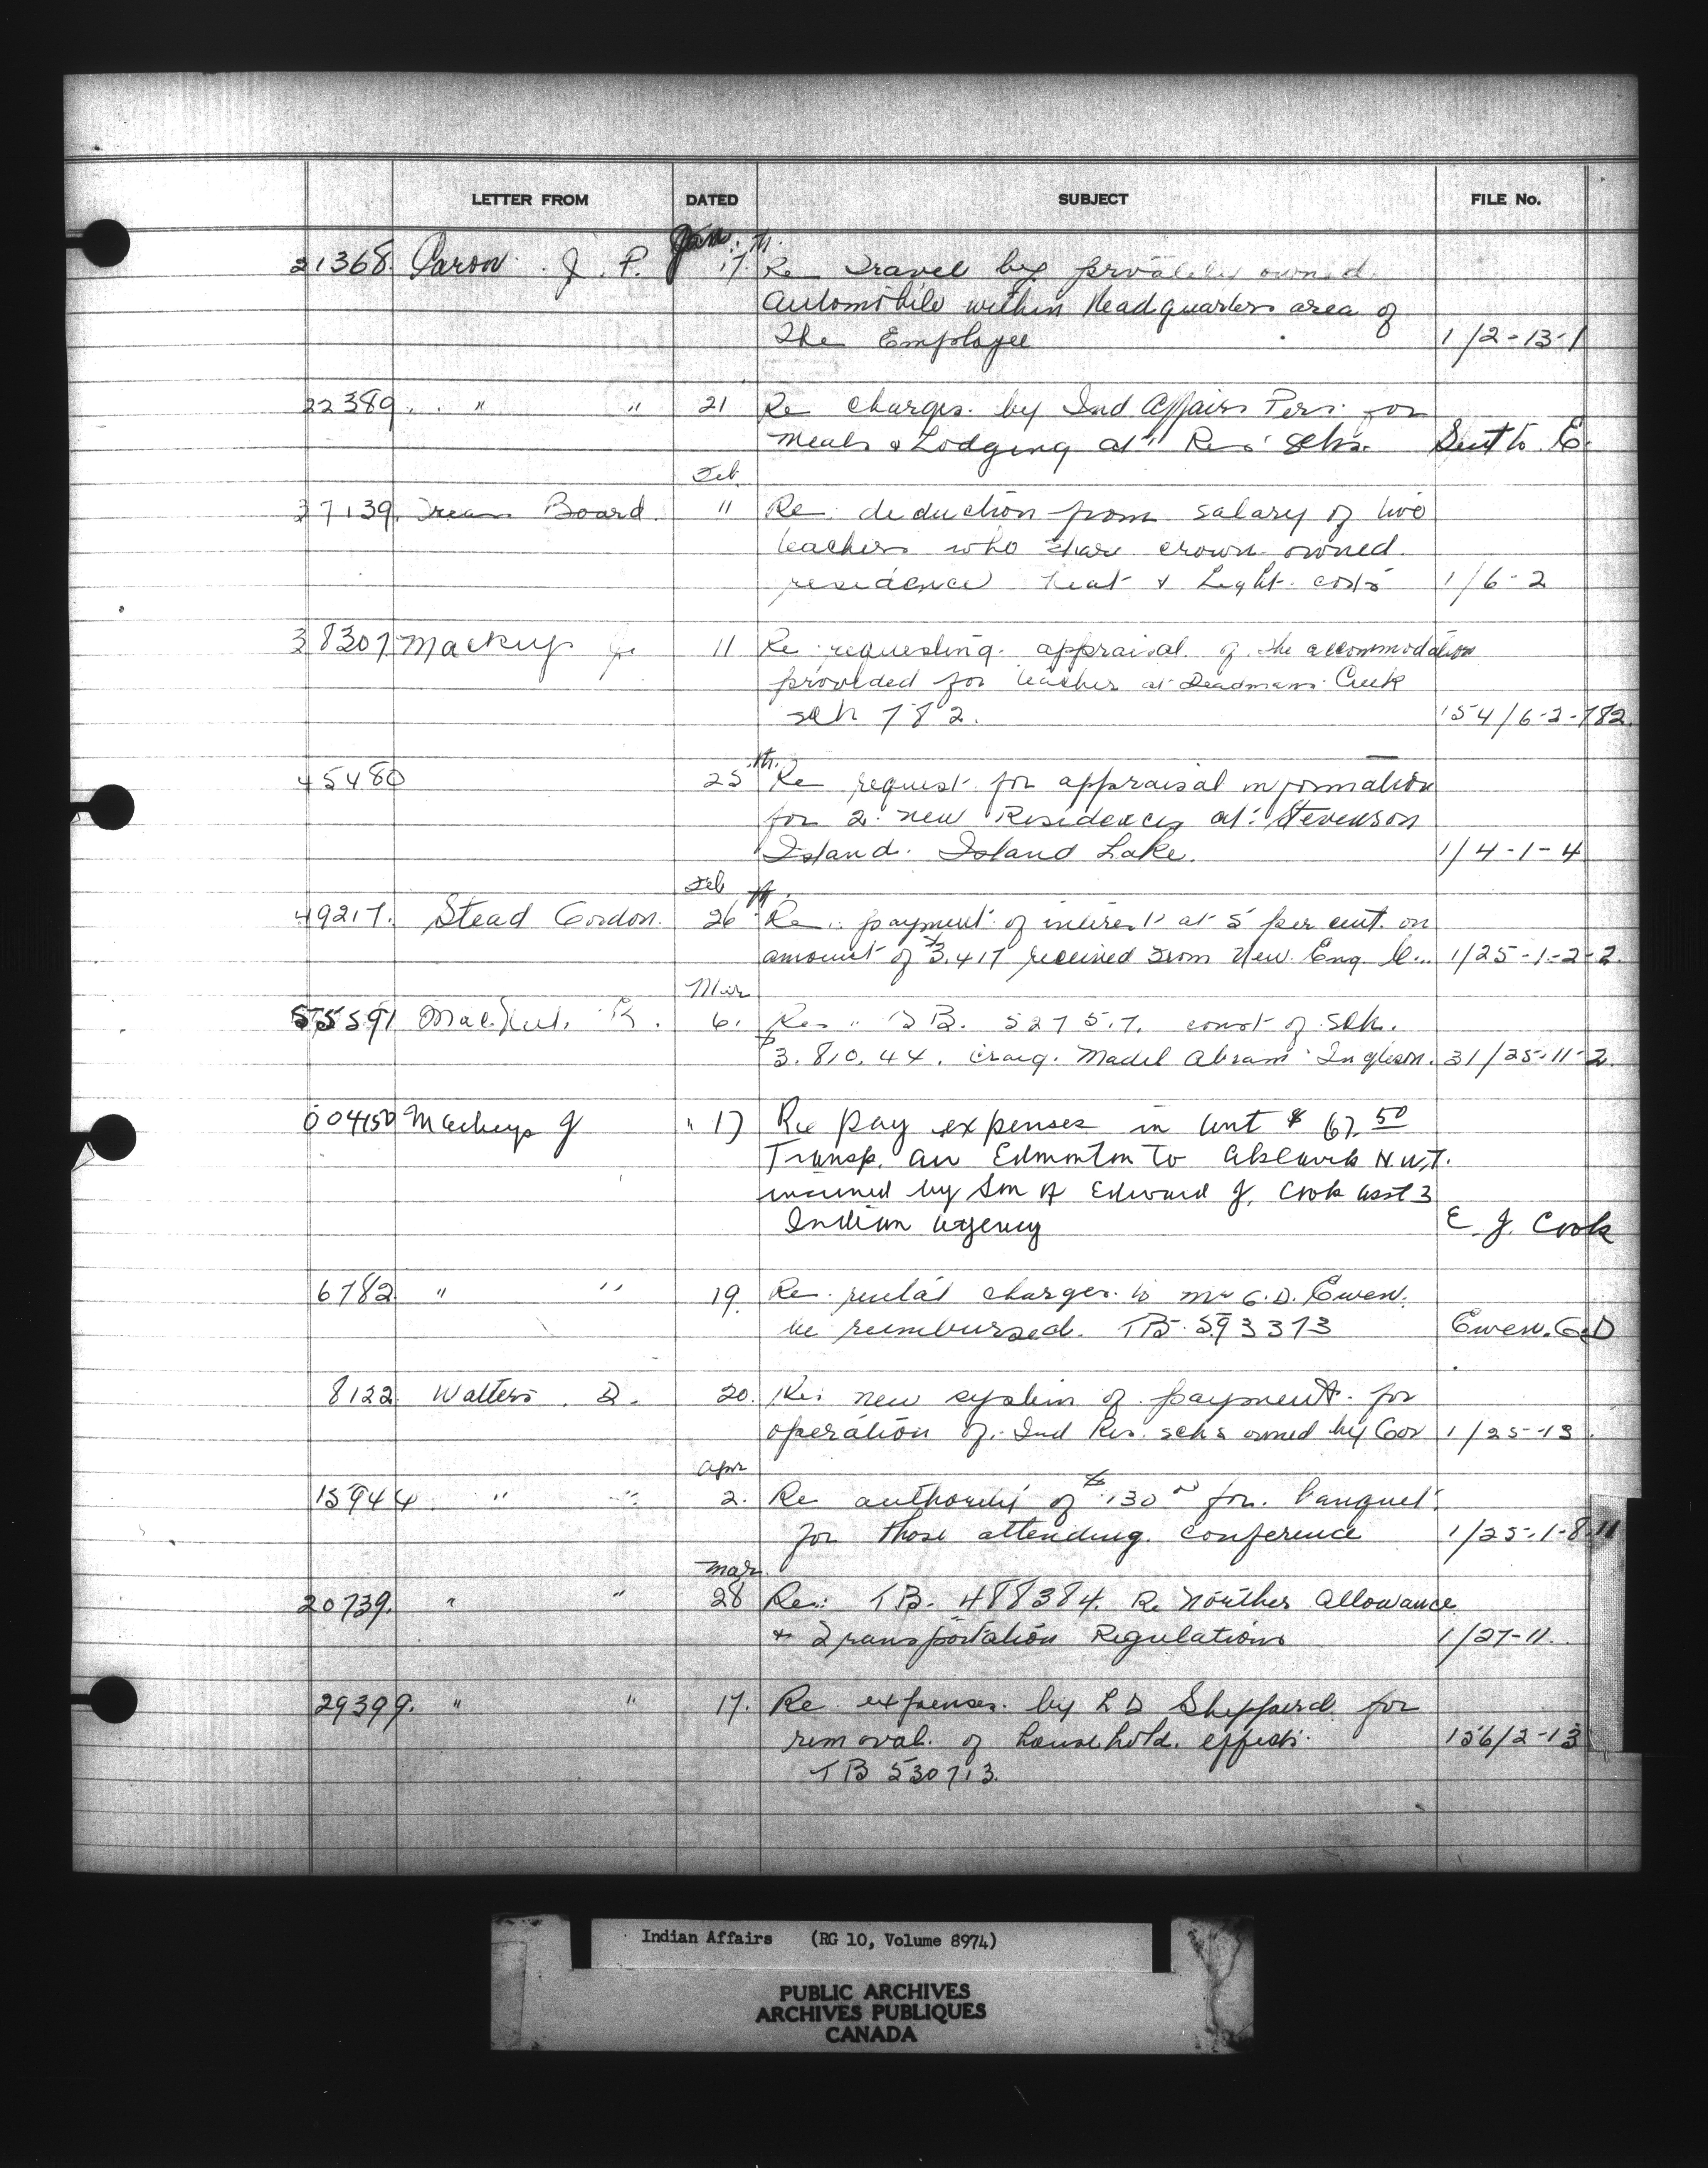 LETTER FROM DATED SUBJECT FILE No.
Jan. th.
21368. Caron J. P. 17. Re Travel by privately owned
automobile within Headquarters area of
The Employee 1/2-13-1
22389. " " 21 Re charges by Ind Affairs Pers. for
meals & Lodging at Res Schs. Sent to E.
Feb.
37139. Treas Board. 11 Re deduction from salary of two
teachers who share crown owned
residence heat & Light costs 1/6-2
38307 Mackey 11 Re requesting appraisal of the accommodation
provided for teacher at Deadmans Creek
sch 782. 154/6-2-782.
45480 25 th. Re request for appraisal information
for 2 new Residences at Stevenson
Island. Island Lake. 1/4-1-4
Feb th.
49217. Stead Gordon. 26 Re payment of interest at 5 per cent. on
amount of $3,417 received from New Eng. C... 1/25-1-2-2.
Mar
55591 6. Re " TB. 52757. const of Sch.
$3.810.44. Craig. Madill Abram Ingleson. 31/25-11-2.
004150 Mackey J " 17 Re pay expenses in amt $ 67.50
Transp. air Edmonton to Aklavik N.W.T.
incurred by Son of Edward J. Cook asst 3
Indian Agency E. J. Cook
6782 " " 19. Re. rental charges to Mr G.D. Ewen.
be reimbursed. TB 593373 Ewen. G.D
8122. Walters. D. 20. Re: new system of payment for
operation of Ind Res. schs owned by Gov 1/25-13.
Apr
15944. " " 2. Re authority of $130 for Banquet
for those attending Conference 1/25-1-8-11
Mar.
20739. " " 28 Re: TB. 488384. Re Norther Allowance
& Transportation Regulations 1/27-11.
29399. " " 17. Re expenses by L D Shepperd for
removal of household effects. 156/2-13
TB 530713.
Indian Affairs (RG 10, Volume 8974)
PUBLIC ARCHIVES
ARCHIVES PUBLIQUES
CANADA